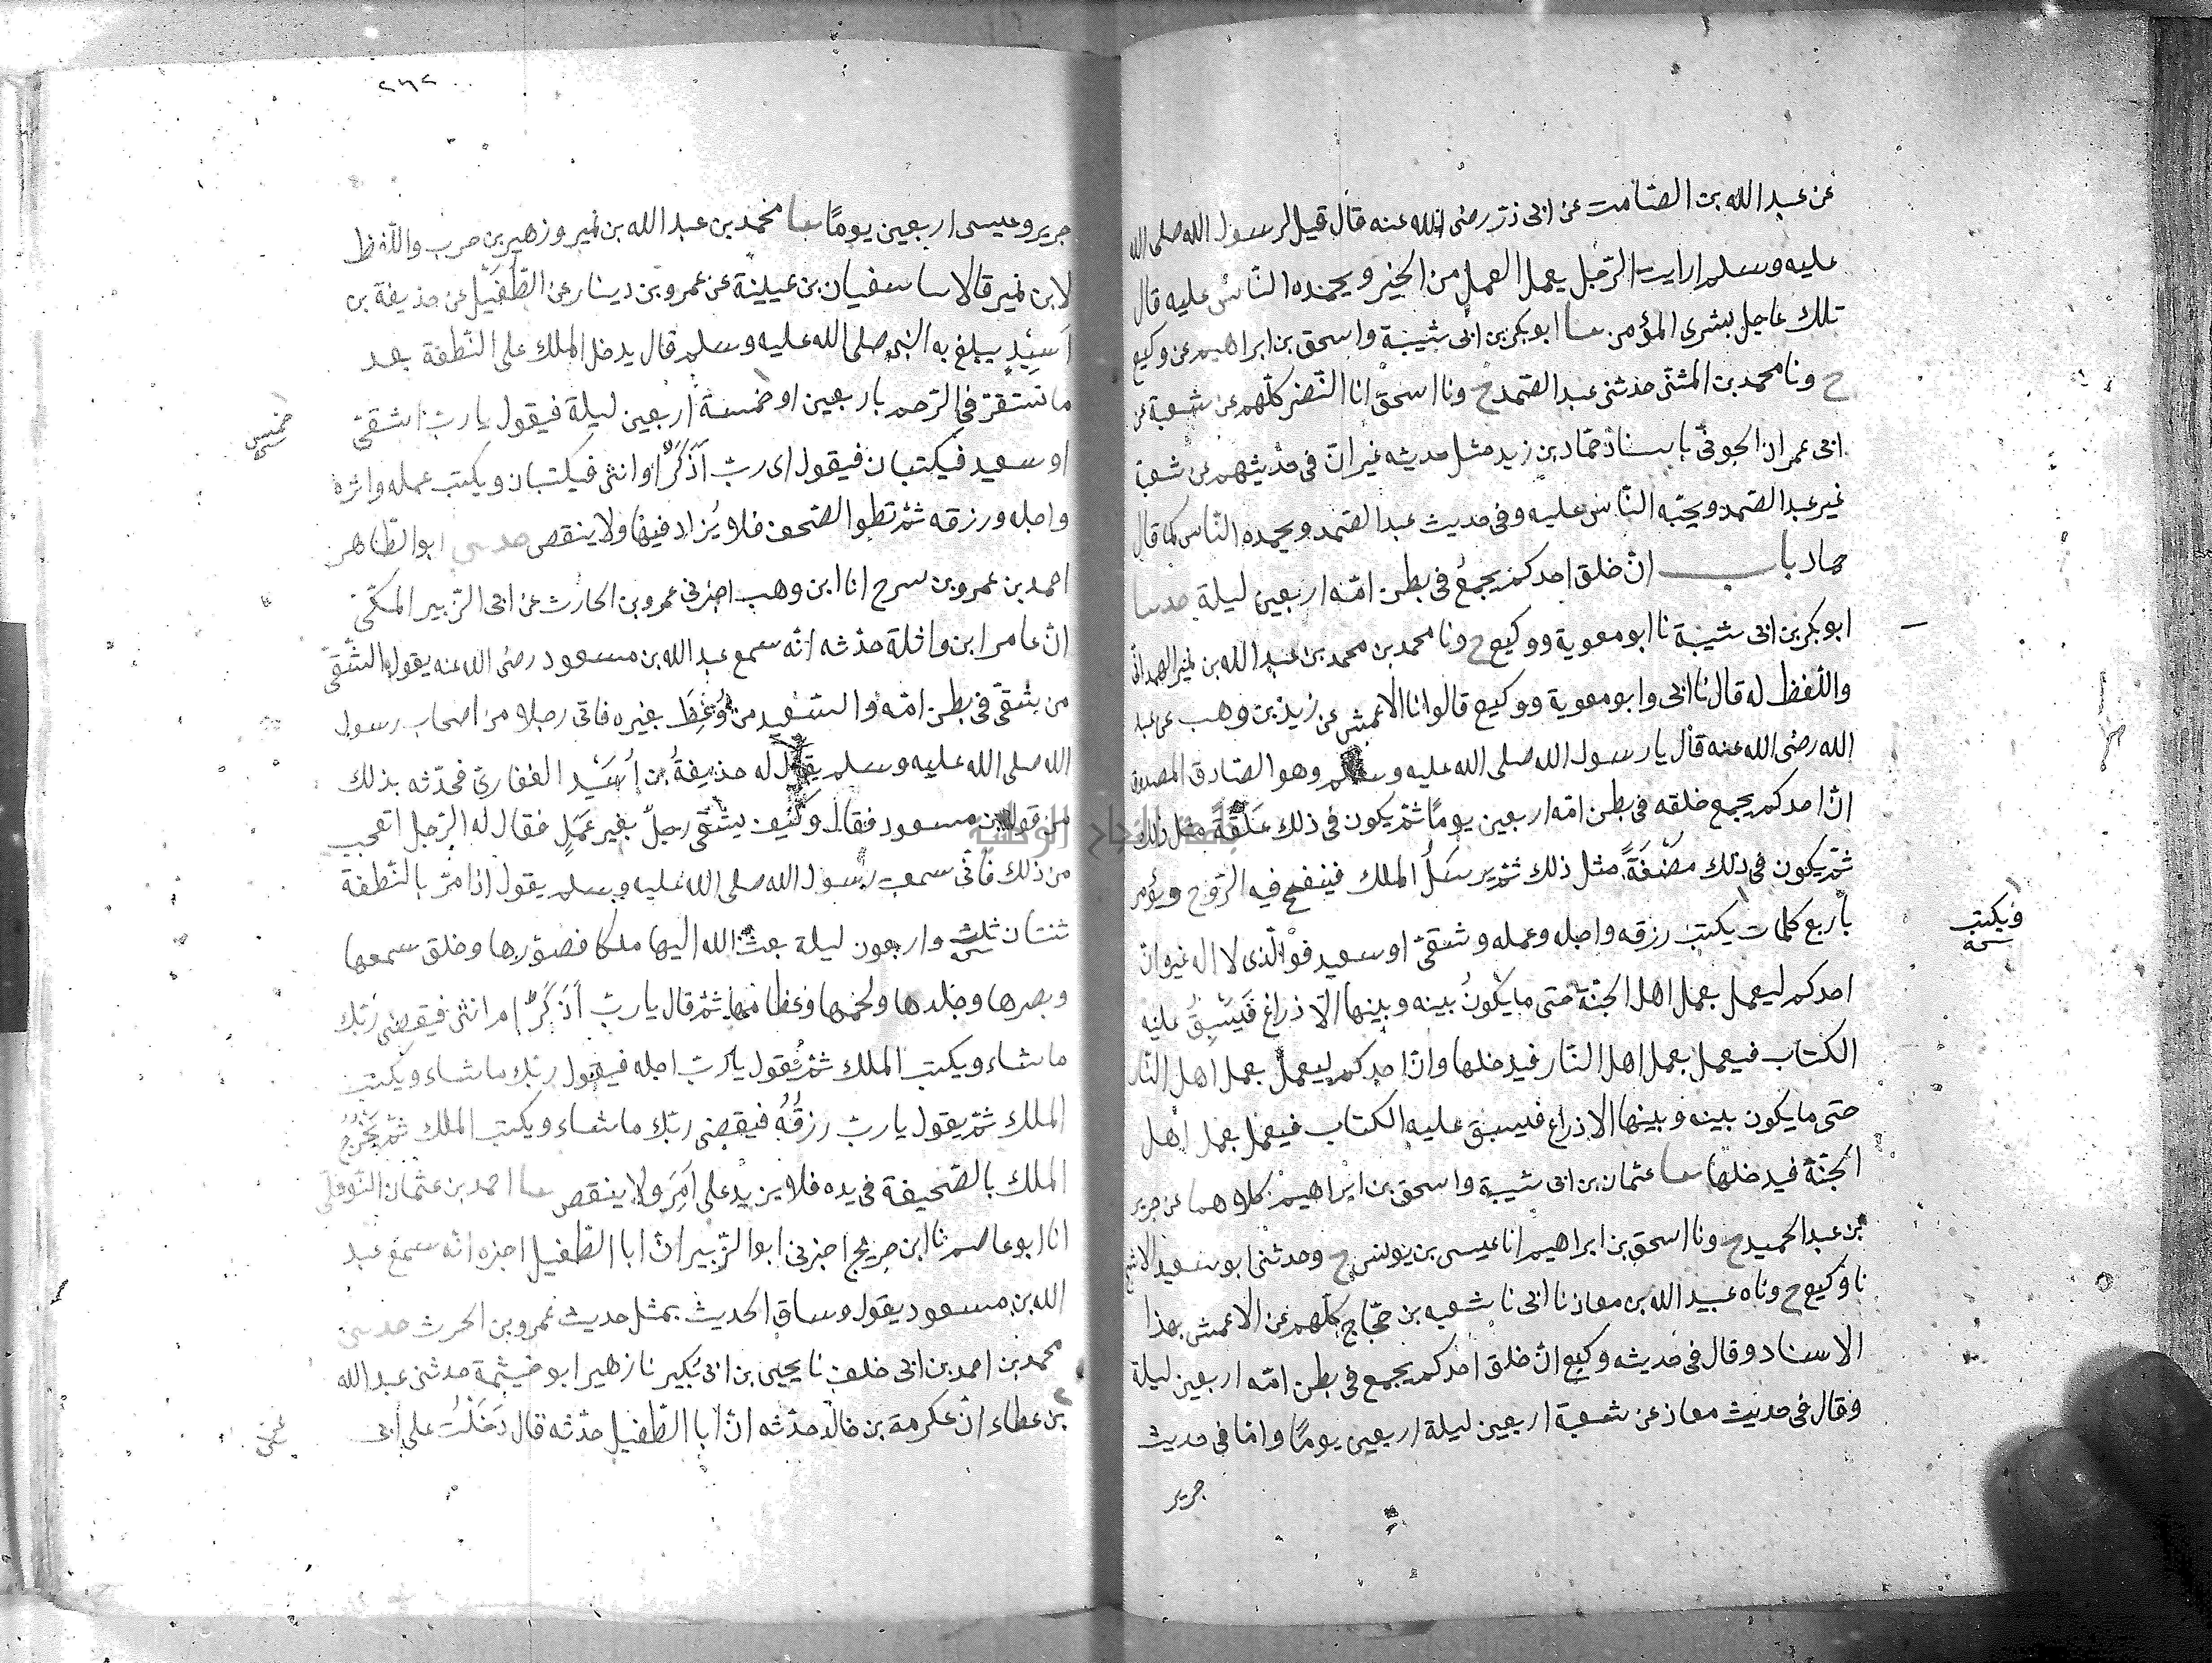 عن عبد الله بن الصامت عن ابى ذر رضى الله عنه قال قيل لرسول الله صلى الله
عليه وسلم ارايت الرجل يعمل العمل من الخير ويحمده الناس عليه قال
تلك عاجل بشرى المؤمن حدثنا ابو بكر بن ابى شيبة واسحق بن ابراهيم عن وكيع
ح ونا محمد بن المثنى حدثنى عبد الصمد ح ونا اسحق انا النضر كلهم عن شعبة عن
ابى عمران الجونى باسناد حماد بن زيد مثل حديثه غير ان فى حديثهم عن شعبة
غير عبد الصمد ويحبه الناس عليه وفى حديث عبد الصمد ويحمده الناس كما قال
حماد باب ان خلق احدكم يجمع فى بطن امه اربعين ليلة حدثنا
ابو بكر بن ابى شيبة نا ابو معوية ووكيع ح ونا محمد بن محمد بن عبد الله بن نمير الهمدانى
واللفظ له قال نا ابى وابو معوية ووكيع قالوا نا الاعمش عن زيد بن وهب عن عبد
الله رضى الله عنه قال يا رسول الله صلى الله عليه وسلم وهو الصادق المصدوق
ان احدكم يجمع خلقه فى بطن امه اربعين يومًا ثم يكون فى ذلك عَلَقَةً مثل ذلك
ثم يكون فى ذلك مضغةً مثل ذلك ثم يرسَلُ الملك فينفخ فيه الروح ويؤمر
بأربع كلمات يكتب رزقه واجله وعمله وشقى او سعيد فوالذى لا اله غيره ان
ويكتب
احدكم ليعمل بعمل اهل الجنة حتى ما يكونُ بينه وبينها الا ذراع فَيَسْبِقُ عليه
الكتاب فيعمل بعمل اهل النار فيدخلها وان احدكم ليعمل بعمل اهل النار
حتى ما يكون بينه وبينها الا ذراع فيسبق عليه الكتاب فيعمل بعمل اهل
الجنة فيدخلها حدثنا عثمان بن ابى شيبة واسحق بن ابراهيم كلاهما عن جرير
بن عبد الحميد ح ونا اسحق بن ابراهيم انا عيسى بن يونس ح وحدثنى ابو سعيد الاشج
نا وكيع ح وناه عبيد الله بن معاذ نا ابى نا شعبه بن حجاج كلهم عن الاعمش بهذا
الاسناد وقال فى حديثه وكيع ان خلق احدكم يجمع فى بطن امه اربعين ليلة
وقال فى حديث معاذ عن شعبة اربعين ليلة اربعين يومًا واما فى حديث
جرير
٢٦٢
جرير وعيسى اربعين يومًا حدثنا محمد بن عبد الله بن نمير وزهير بن حرب واللفظ
لابن نمير قالا حدثنا سفيان بن عيينة عن عمرو بن دينار عن الطفيل عن حذيفة بن
اَسِيْدٍ يبلغ به النبى صلى الله عليه وسلم قال يدخل الملك على النطفة بعد
ما تستقر فى الرحم باربعين او خمسة اربعين ليلة فيقول يا رب اشقى
خمس
او سعيد فيكتبان فيقول اى رب أذَكَرٌ او انثى فيكتبان ويكتب عمله واثره
واجله ورزقه ثم تطوا الصحف فلا يُزاد فيها ولا ينقص حدثنى ابو الطاهر
احمد بن عمرو بن سرح انا ابن وهب اخبرنى عمرو بن الحارث عن ابى الزبير المكى
ان عامر ابن واثلة حدثه انه سمع عبد الله بن مسعود رضى الله عنه يقول الشقى
من شقى فى بطن امه والسعيد من وُعِظَ بغيره فاتى رجلا من اصحاب رسول
الله صلى الله عليه وسلم يقال له حذيفةُ بن اُسَيْد الغفارى فحدثه بذلك
من قول بن مسعود فقال وكَيْفَ يشقى رجلٌ بغير عَمَلٍ فقال له الرجل اتعجب
من ذلك فانى سمعت رسول الله صلى الله عليه وسلم يقول اذا مر بالنطفة
ثنتان ثلث واربعون ليلة بعث الله اليها ملكا فصورها وخلق سمعها
وبصرها وجلدها ولحمها وعظامها ثم قال يا رب أذَكَرٌ ام انثى فيقضى رَبّك
ما شاء ويكتب الملك ثم يقول يا رب اجله فيقول ربك ما شاء ويكتب
الملك ثم يقول يا رب رزقُهُ فيقضى ربك ما شاء ويكتب الملك ثم يخرج
الملك بالصحيفة فى يده فلا يزيد على اَمرٍ ولا ينقص حدثنا احمد بن عثمان النوفلى
انا ابو عاصم نا ابن جريج اخبرنى ابو الزبير ان ابا الطفيل اخبره انه سمع عبد
الله بن مسعود يقول وساق الحديث بمثل حديث عمرو بن الحرث حدثنى
محمد بن احمد بن ابى خلف نا يحيى بن ابى بُكير نا زهير ابو خيثمة حدثنى عبد الله
بن عطاء ان عكرمة بن خالد حدثه ان ابا الطفيل حدثه قال دَخَلْتُ على ابى